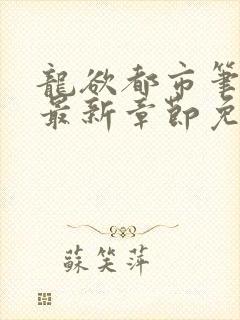 龍欲都市筆
最新章節免
蘇笑萍